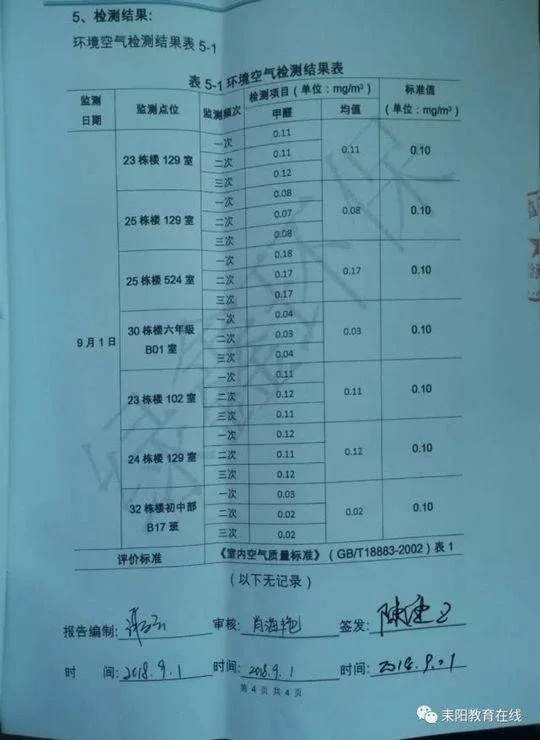 5、检测结果：
环境空气检测结果表 5-1
表 5-1 环境空气检测结果表
监测日期 监测点位 监测频次 检测项目（单位：mg/m³） 标准值（单位：mg/m³）
甲醛 均值
9月1日
23 栋楼 129 室 一次 0.11 0.11 0.10
二次 0.11
三次 0.12
25 栋楼 129 室 一次 0.08 0.08 0.10
二次 0.07
三次 0.08
25 栋楼 524 室 一次 0.18 0.17 0.10
二次 0.17
三次 0.17
30 栋楼六年级 B01 室 一次 0.04 0.03 0.10
二次 0.03
三次 0.04
23 栋楼 102 室 一次 0.11 0.11 0.10
二次 0.12
三次 0.11
24 栋楼 129 室 一次 0.12 0.12 0.10
二次 0.11
三次 0.12
32 栋楼初中部 B17 班 一次 0.03 0.02 0.10
二次 0.02
三次 0.02
评价标准 《室内空气质量标准》（GB/T18883-2002）表 1
（以下无记录）
报告编制: 审核: 肖海艳 签发:
时 间: 2018.9.1 时间: 2018.9.1 时间: 2018.9.1
第 4 页 共 4 页
耒阳教育在线